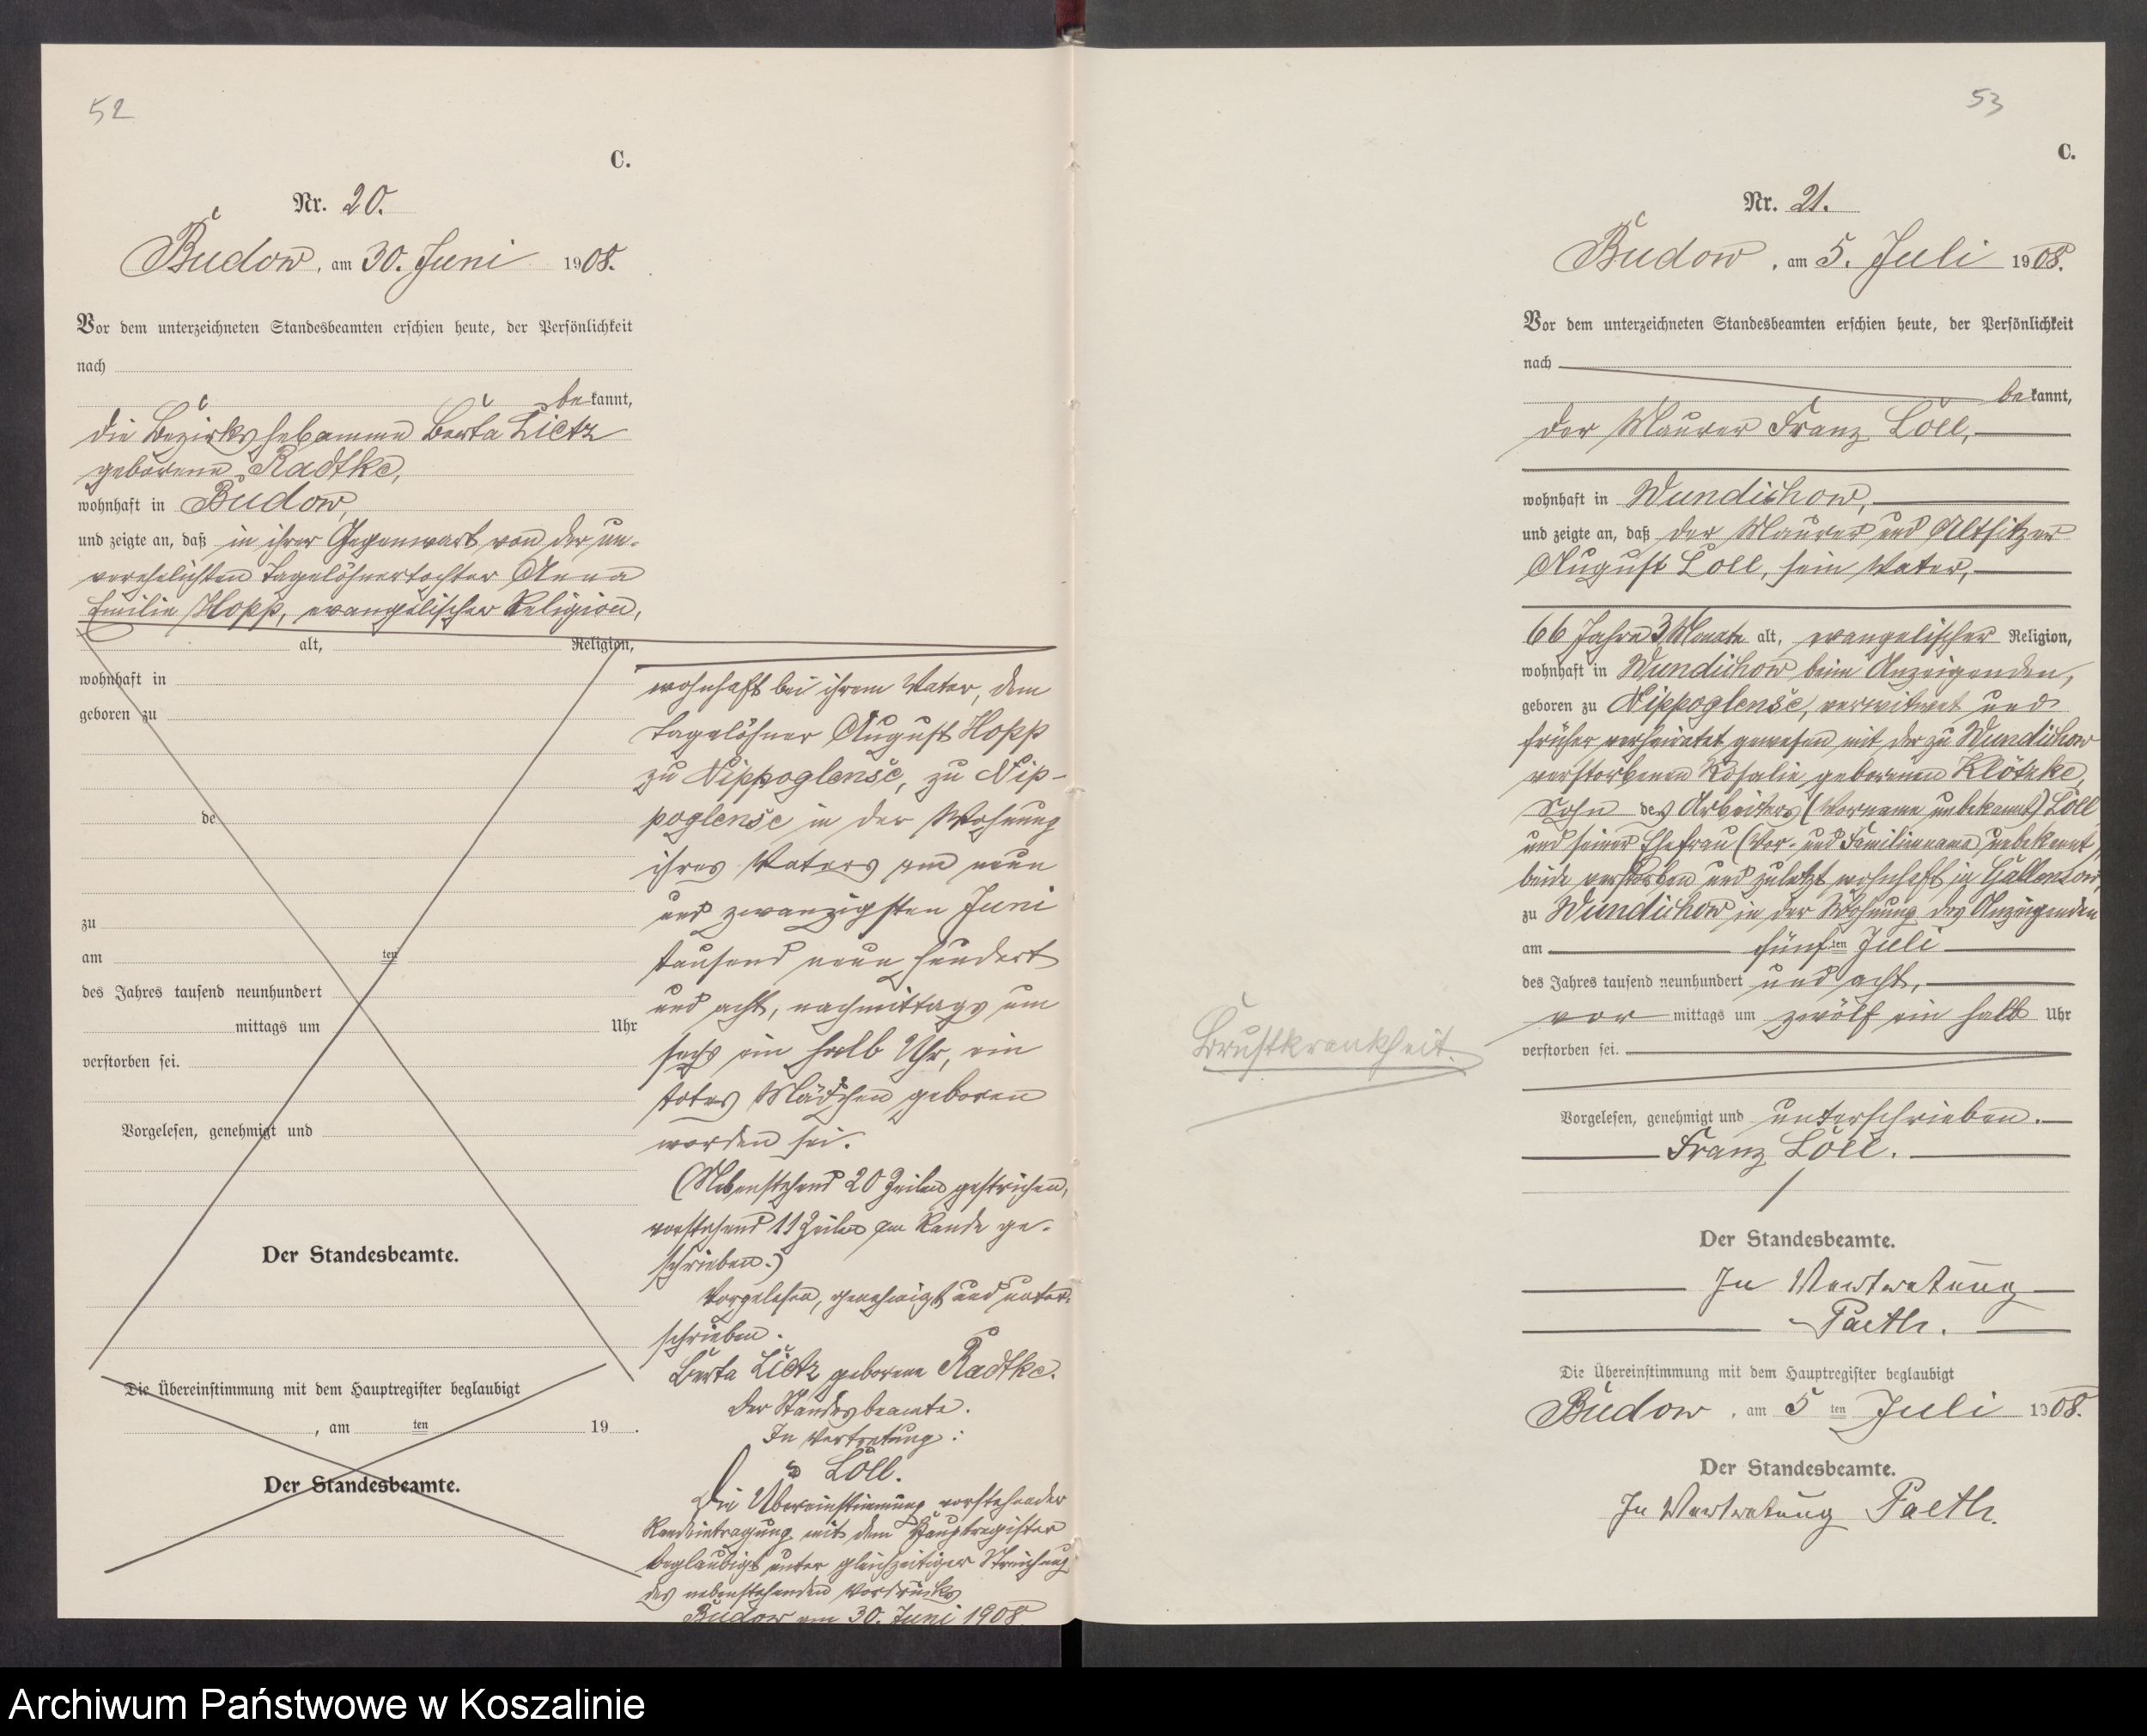 52
C.
Nr. 20.
Budow, am 30. Juni 1908.
Vor dem unterzeichneten Standesbeamten erschien heute, der Persönlichkeit
nach
bekannt,
die Bezirkshebamme Berta Lietz
geborene Radtke,
wohnhaft in Budow,
und zeigte an, daß in ihrer Gegenwart von der un-
verehelichten Tagelöhnertochter Anna
Emilie Hopp, evangelischer Religion,
alt, Religion,
wohnhaft in
geboren zu
de
zu
am ten
des Jahres tausend neunhundert
mittags um Uhr
verstorben sei.
Vorgelesen, genehmigt und
Der Standesbeamte.
Die Übereinstimmung mit dem Hauptregister beglaubigt
, am ten 19 .
Der Standesbeamte.
wohnhaft bei ihrem Vater, dem
Tagelöhner August Hopp
zu Nippoglense, zu Nip-
poglense in der Wohnung
ihres Vaters am neun
und zwanzigsten Juni
tausend neun hundert
und acht, nachmittags um
sechs ein halb Uhr, ein
totes Mädchen geboren
worden sei.
(Nebenstehend 20 Zeilen gestrichen,
vorstehend 11 Zeilen am Rande ge-
schrieben.)
Vorgelesen, genehmigt und unter-
schrieben.
Berta Lietz geborene Radtke.
Der Standesbeamte.
In Vertretung:
Loll.
Die Übereinstimmung vorstehender
Randeintragung mit dem Hauptregister
beglaubigt unter gleichzeitiger Streichung
des nebenstehenden Vordrucks
Budow am 30. Juni 1908
53
C.
Nr. 21.
Budow, am 5. Juli 1908.
Vor dem unterzeichneten Standesbeamten erschien heute, der Persönlichkeit
nach
bekannt,
der Maurer Franz Loll,
wohnhaft in Wundichow,
und zeigte an, daß der Maurer und Altsitzer
August Loll, sein Vater,
66 Jahre 3 Monate alt, evangelischer Religion,
wohnhaft in Wundichow beim Anzeigenden,
geboren zu Nippoglense, verwitwet und
früher verheiratet gewesen mit der zu Wundichow
verstorbenen Rosalie geborenen Klötzke,
Sohn des Arbeiters (Vorname unbekannt) Loll
und seiner Ehefrau (Vor- und Familienname unbekannt)
beide verstorben und zuletzt wohnhaft in Gallensow,
zu Wundichow in der Wohnung des Anzeigenden
am fünften Juli
des Jahres tausend neunhundert und acht,
vor mittags um zwölf ein halb Uhr
verstorben sei.
Brustkrankheit.
Vorgelesen, genehmigt und unterschrieben.
Franz Loll.
Der Standesbeamte.
In Vertretung
Paeth.
Die Übereinstimmung mit dem Hauptregister beglaubigt
Budow, am 5 ten Juli 1908.
Der Standesbeamte.
In Vertretung Paeth.
Archiwum Państwowe w Koszalinie